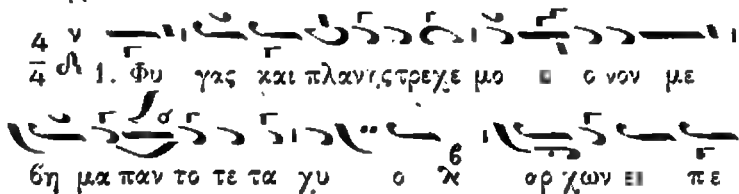 4/4 1. Φυ γας και πλανης τρεχε μο ο νον με
βη μα παν το τε τα χυ ο αρ χων ει πε